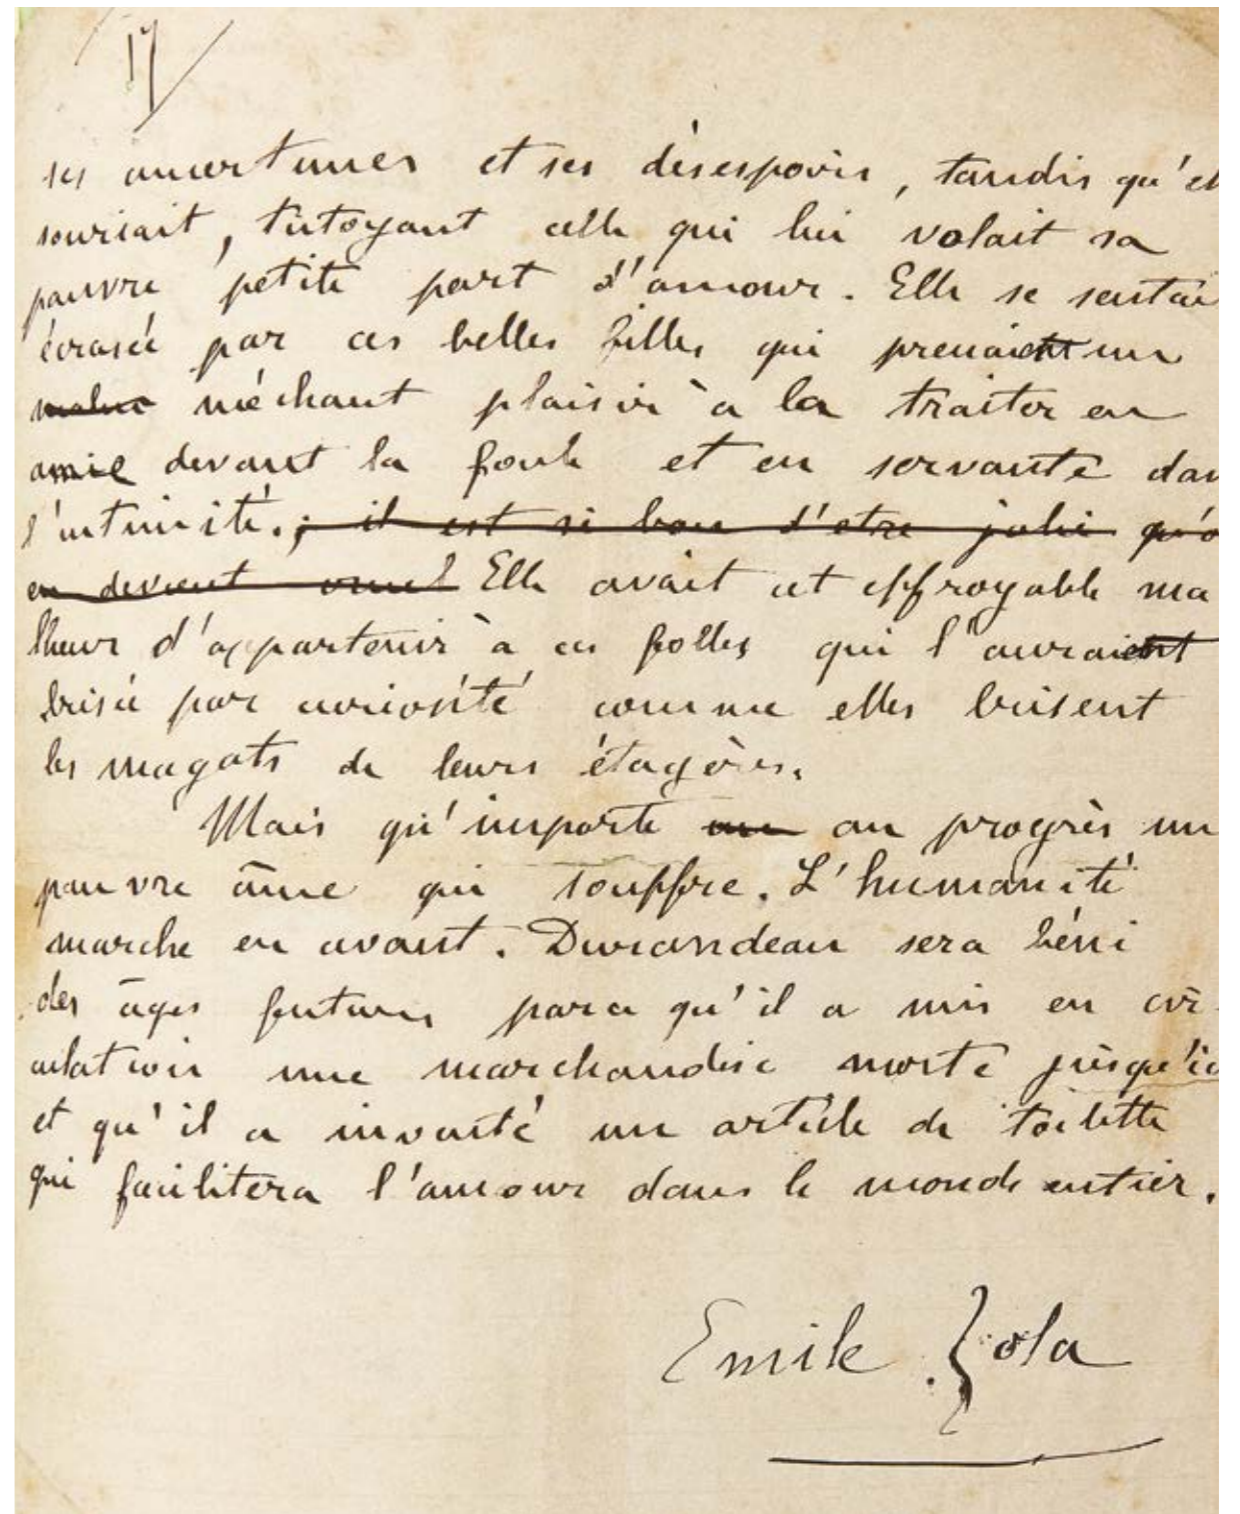 17
ses amertumes et ses désespoirs, tandis qu'el
souriait, tutoyant celle qui lui volait sa
pauvre petite part d'amour. Elle se sentai
écrasée par ces belles filles qui prenaient un
malin méchant plaisir à la traiter en
amie devant la foule et en servante dan
l'intimité. ; il est si bon d'etre jolie qu'o
en devient cruel Elle avait cet effroyable ma
lheur d'appartenir à ces folles qui l'auraient
brisée par curiosité comme elles brisent
les magots de leurs étagères.
Mais qu'importe au progrès un
pauvre âme qui souffre. L'humanité
marche en avant. Durandeau sera béni
des âges futurs parce qu'il a mis en cir
culation une marchandise morte jusqu'ic
et qu'il a inventé un article de toilette
qui facilitera l'amour dans le monde entier.
Emile Zola